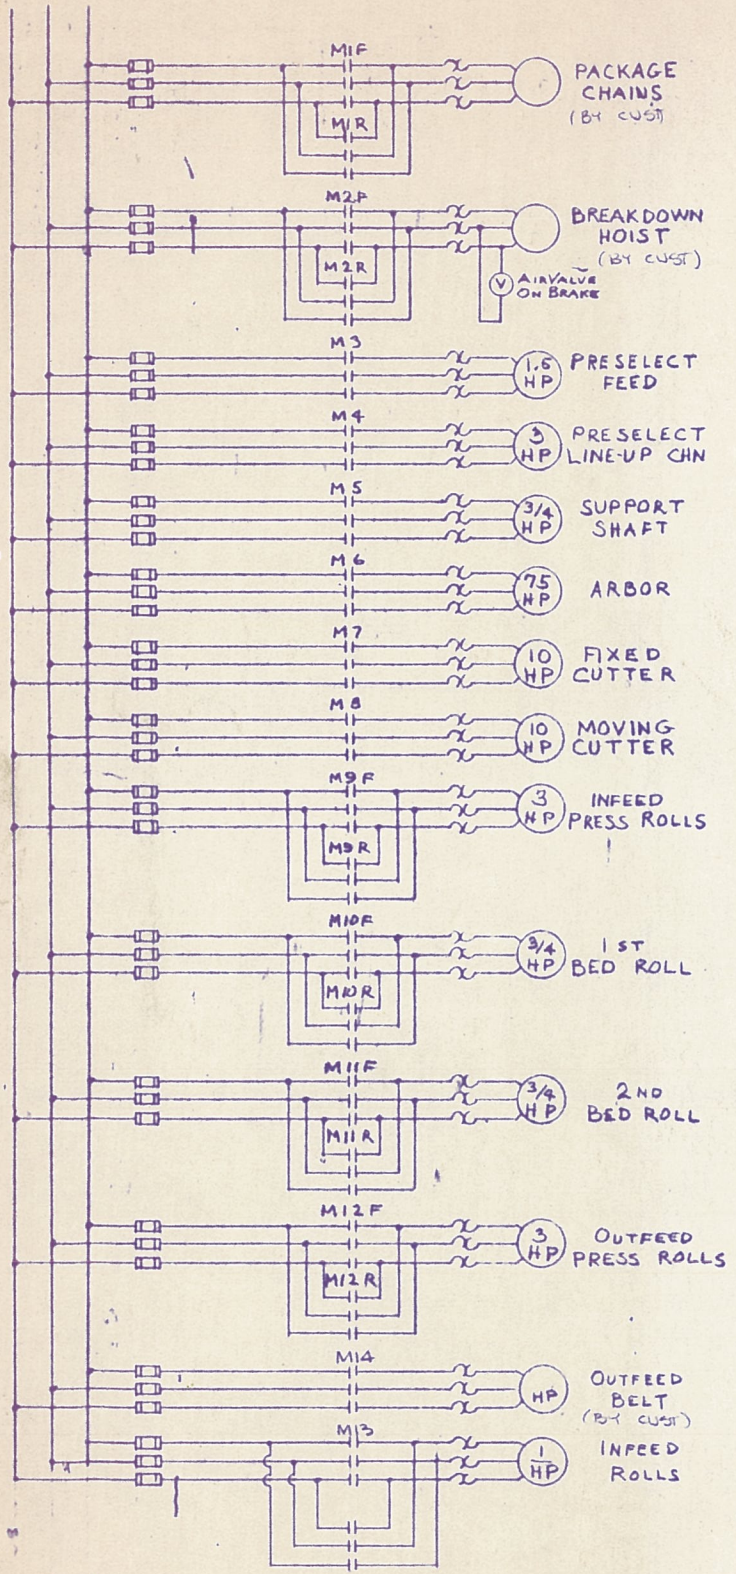 M1F
PACKAGE
CHAINS
(BY CUST)
M1R
M2F
BREAKDOWN
HOIST
(BY CUST)
M2R
V
AIR VALVE
ON BRAKE
M3
1.5
HP
PRESELECT
FEED
M4
3
HP
PRESELECT
LINE-UP CHN
M5
3/4
HP
SUPPORT
SHAFT
M6
75
HP
ARBOR
M7
10
HP
FIXED
CUTTER
M8
10
HP
MOVING
CUTTER
M9F
3
HP
INFEED
PRESS ROLLS
M9R
M10F
3/4
HP
1ST
BED ROLL
M10R
M11F
3/4
HP
2ND
BED ROLL
M11R
M12F
3
HP
OUTFEED
PRESS ROLLS
M12R
M14
HP
OUTFEED
BELT
(BY CUST)
M13
1
HP
INFEED
ROLLS